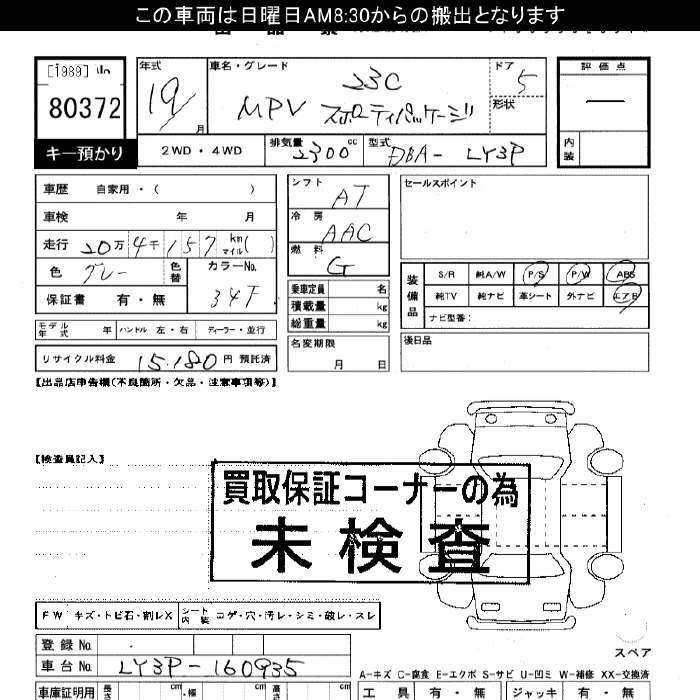 この車両は日曜日AM8:30からの搬出となります
[1989] Un
80372
キー預かり
年式 19 月
車名・グレード 23C
MPV スポーティパッケージ
ドア 5
形状
評価点
―
内装
2WD・4WD
排気量 2300 cc
型式 DBA- LY3P
車歴 自家用・( )
車検 年 月
走行 20万4千157 km マイル( )
色 グレー 色替 カラーNo. 34F
保証書 有・無
シフト AT
冷房 AAC
燃料 G
乗車定員 名
積載量 kg
総重量 kg
セールスポイント
装備品
S/R 純A/W P/S P/W ABS
純TV 純ナビ 革シート 外ナビ エアB
ナビ型番:
モデル年式 年 ハンドル 左・右 ディーラー・並行
名変期限 月 日
後日品
リサイクル料金 15,180 円 預託済
【出品店申告欄(不良箇所・欠品・注意事項等)】
【検査員記入】
買取保証コーナーの為
未検査
FW キズ・トビ石・割レX シート内装 コゲ・穴・汚レ・シミ・破レ・スレ
スペア
登録No.
車台No. LY3P-160935
A-キズ C-腐食 E-エクボ S-サビ U-凹ミ W-補修 XX-交換済
車庫証明用 長さ cm 幅 cm 高さ cm
工具 有・無 ジャッキ 有・無